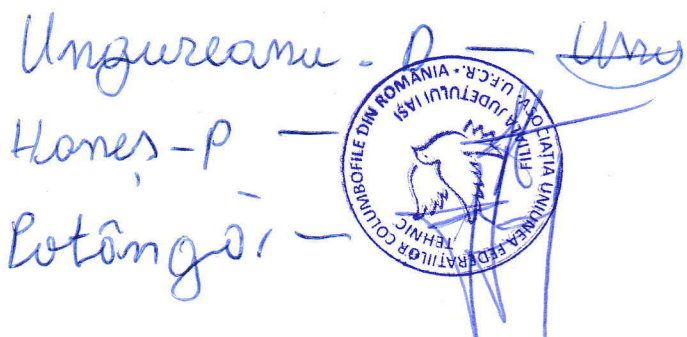 Ungureanu - D —
Haneș - P —
Potângă —
ASOCIAȚIA UNIUNEA FEDERAȚIILOR COLUMBOFILE DIN ROMÂNIA • U.F.C.R. •
FILIALA JUDEȚULUI IAȘI
TEHNIC